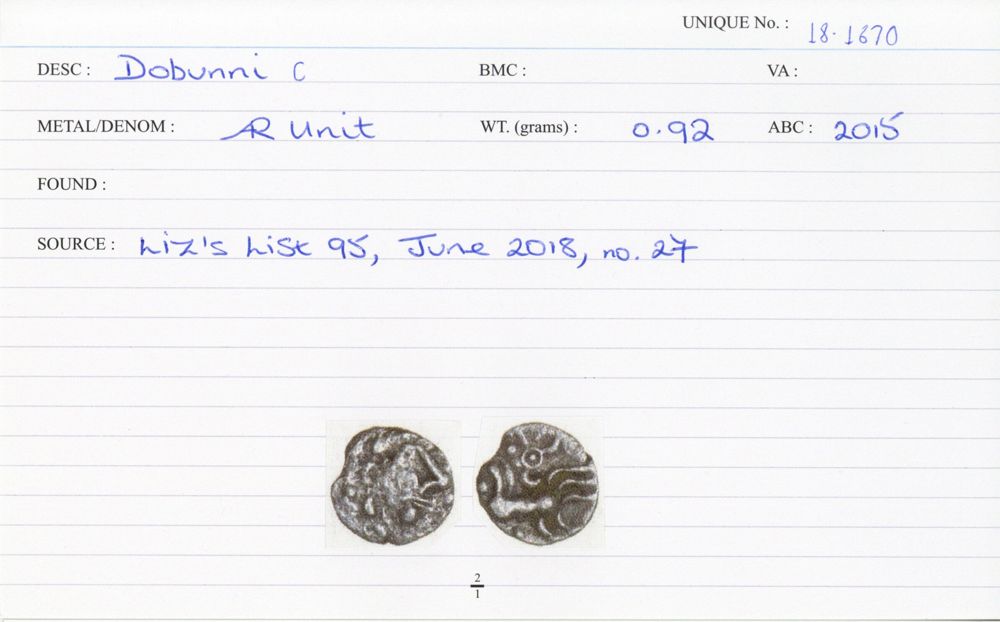 UNIQUE No. : 18-1670
DESC : Dobunni C BMC : VA :
METAL/DENOM : AR Unit WT. (grams) : 0.92 ABC : 2015
FOUND :
SOURCE : Liz's List 95, June 2018, no. 27
2
1